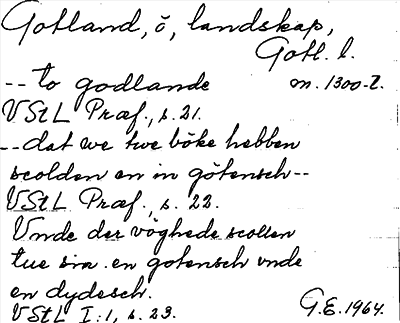 Gotland, ö, landskap,
Gotl. l.
-- to godlande m. 1300-t.
VStL Præf., s. 21.
-- dat we twe böke hebben
scolden en in götensch --
VStL Præf., s. 22.
Vnde der vöghede scollen
tue sin .en gotensch vnde
en dydesch.
VStL I:1, s. 23. G.E. 1964.